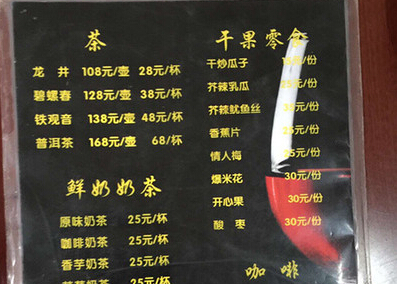 茶
龙 井 108元/壶 28元/杯
碧螺春 128元/壶 38元/杯
铁观音 138元/壶 48元/杯
普洱茶 168元/壶 68/杯
鲜奶奶茶
原味奶茶 25元/杯
咖啡奶茶 25元/杯
香芋奶茶 25元/杯
奶茶 25元/杯
干果零食
干炒瓜子 元/份
芥辣乳瓜 25元/份
芥辣鱿鱼丝 元/份
香蕉片 25元/份
情人梅 25元/份
爆米花 30元/份
开心果 30元/份
酸 枣 30元/份
咖 啡